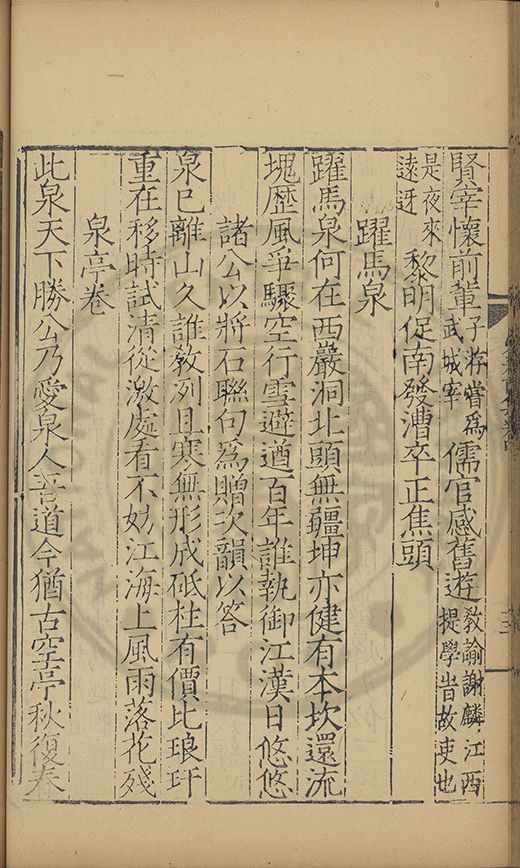 賢宰懷前輩子游嘗爲武城宰儒官感舊遊敎諭謝麟江西提學時故吏也
是夜來遠迓黎明促南發漕卒正焦頭
躍馬泉
躍馬泉何在西巖洞北頭無疆坤亦健有本坎還流
塊歷風爭驟空行雪避遒百年誰執御江漢日悠悠
諸公以將石聯句爲贈次韻以答
泉已離山久誰敎列且寒無形成砥柱有價比琅玕
重在移時試清從激處看不妨江海上風雨落花殘
泉亭卷
此泉天下勝公乃愛泉人吾道今猶古空亭秋復春